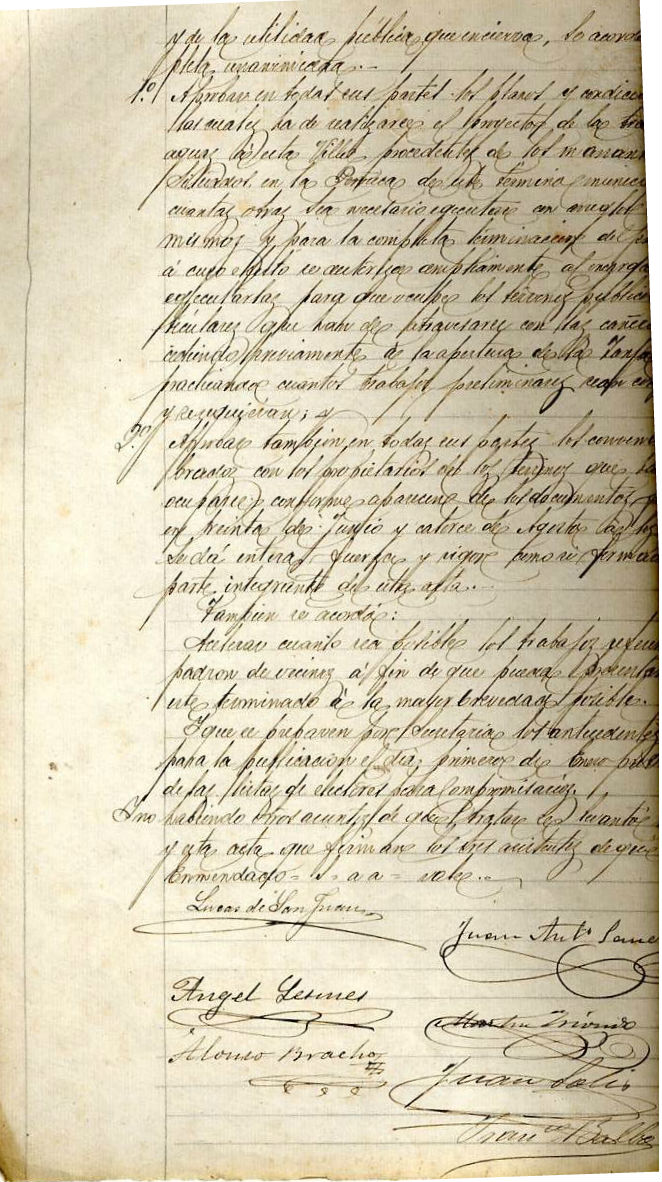 y de la utilidad pública que encierra, se acordó
pleta unanimidad.-
1.º Aprobar en todas sus partes los planos y condicio
las cuales ha de realizarse el proyecto de la tra
aguas á esta Villa, procedentes de los manan
situados en la de este término munici
cuantas obras sea necesario ejecutar con arreglo
mismos y para la completa terminación de
á cuyo efecto se autoriza ampliamente al encarga
ejecutarlas para que ocupe los terrenos públic
ticulares que han de atravesarse con las cañe
cediendo previamente á la apertura de la zanja
practicando cuantos trabajos preliminares sean
y se requieran; y
2.º Aprobar también en todas sus partes los conveni
brados con los propietarios de los terrenos que ha
ocuparse, conforme aparecen de los documentos
en treinta de Junio y catorce de Agosto
se dá entera fuerza y vigor como si forma
parte integrante de esta acta.-
Tambien se acordó:
Acelerar cuanto sea posible los trabajos refer
padron de vecinos á fin de que pueda presentar
este terminado á la mayor brevedad posible.
Y que se preparen por Secretaria los antecedentes
para la publicacion el dia primero de Enero
de las listas de electores para Compromisarios.
Y no habiendo otros asuntos de que tratar se levantó
y esta acta que firman los Sres asistentes de que
Enmendado = = a a = vale.-
Lucas de San Juan
Juan Antº
Angel Lesmes
Alonso Bracho
Juan Solis
Franco